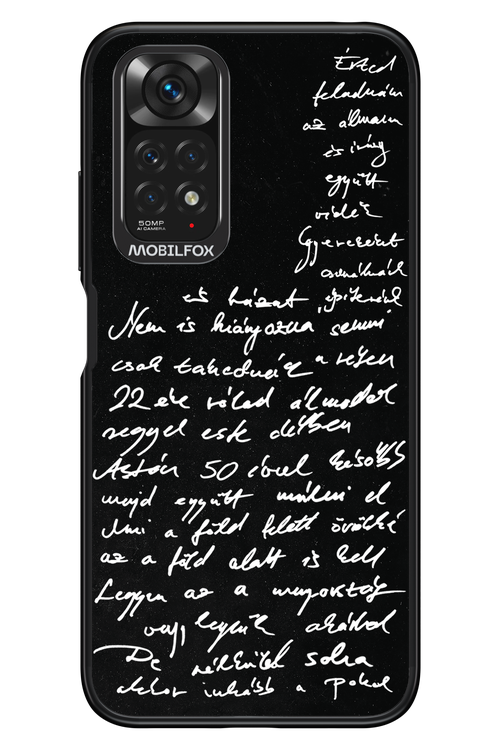 50MP
AI CAMERA
MOBILFOX
Érted
feladnám
az álmaim
és így
együtt
vidék
Gyereket
csinálnánk
és házat építenénk
Nem is hiányozna semmi
csak takednék a réten
22 éve rólad álmodok
reggel este délben
Aztán 50 évvel később
majd együtt múlni el
Ami a föld felett örökké
az a föld alatt is kell
Legyen az a mennyország
vagy legyünk akárhol
De nélküled soha
akkor inkább a Pokol